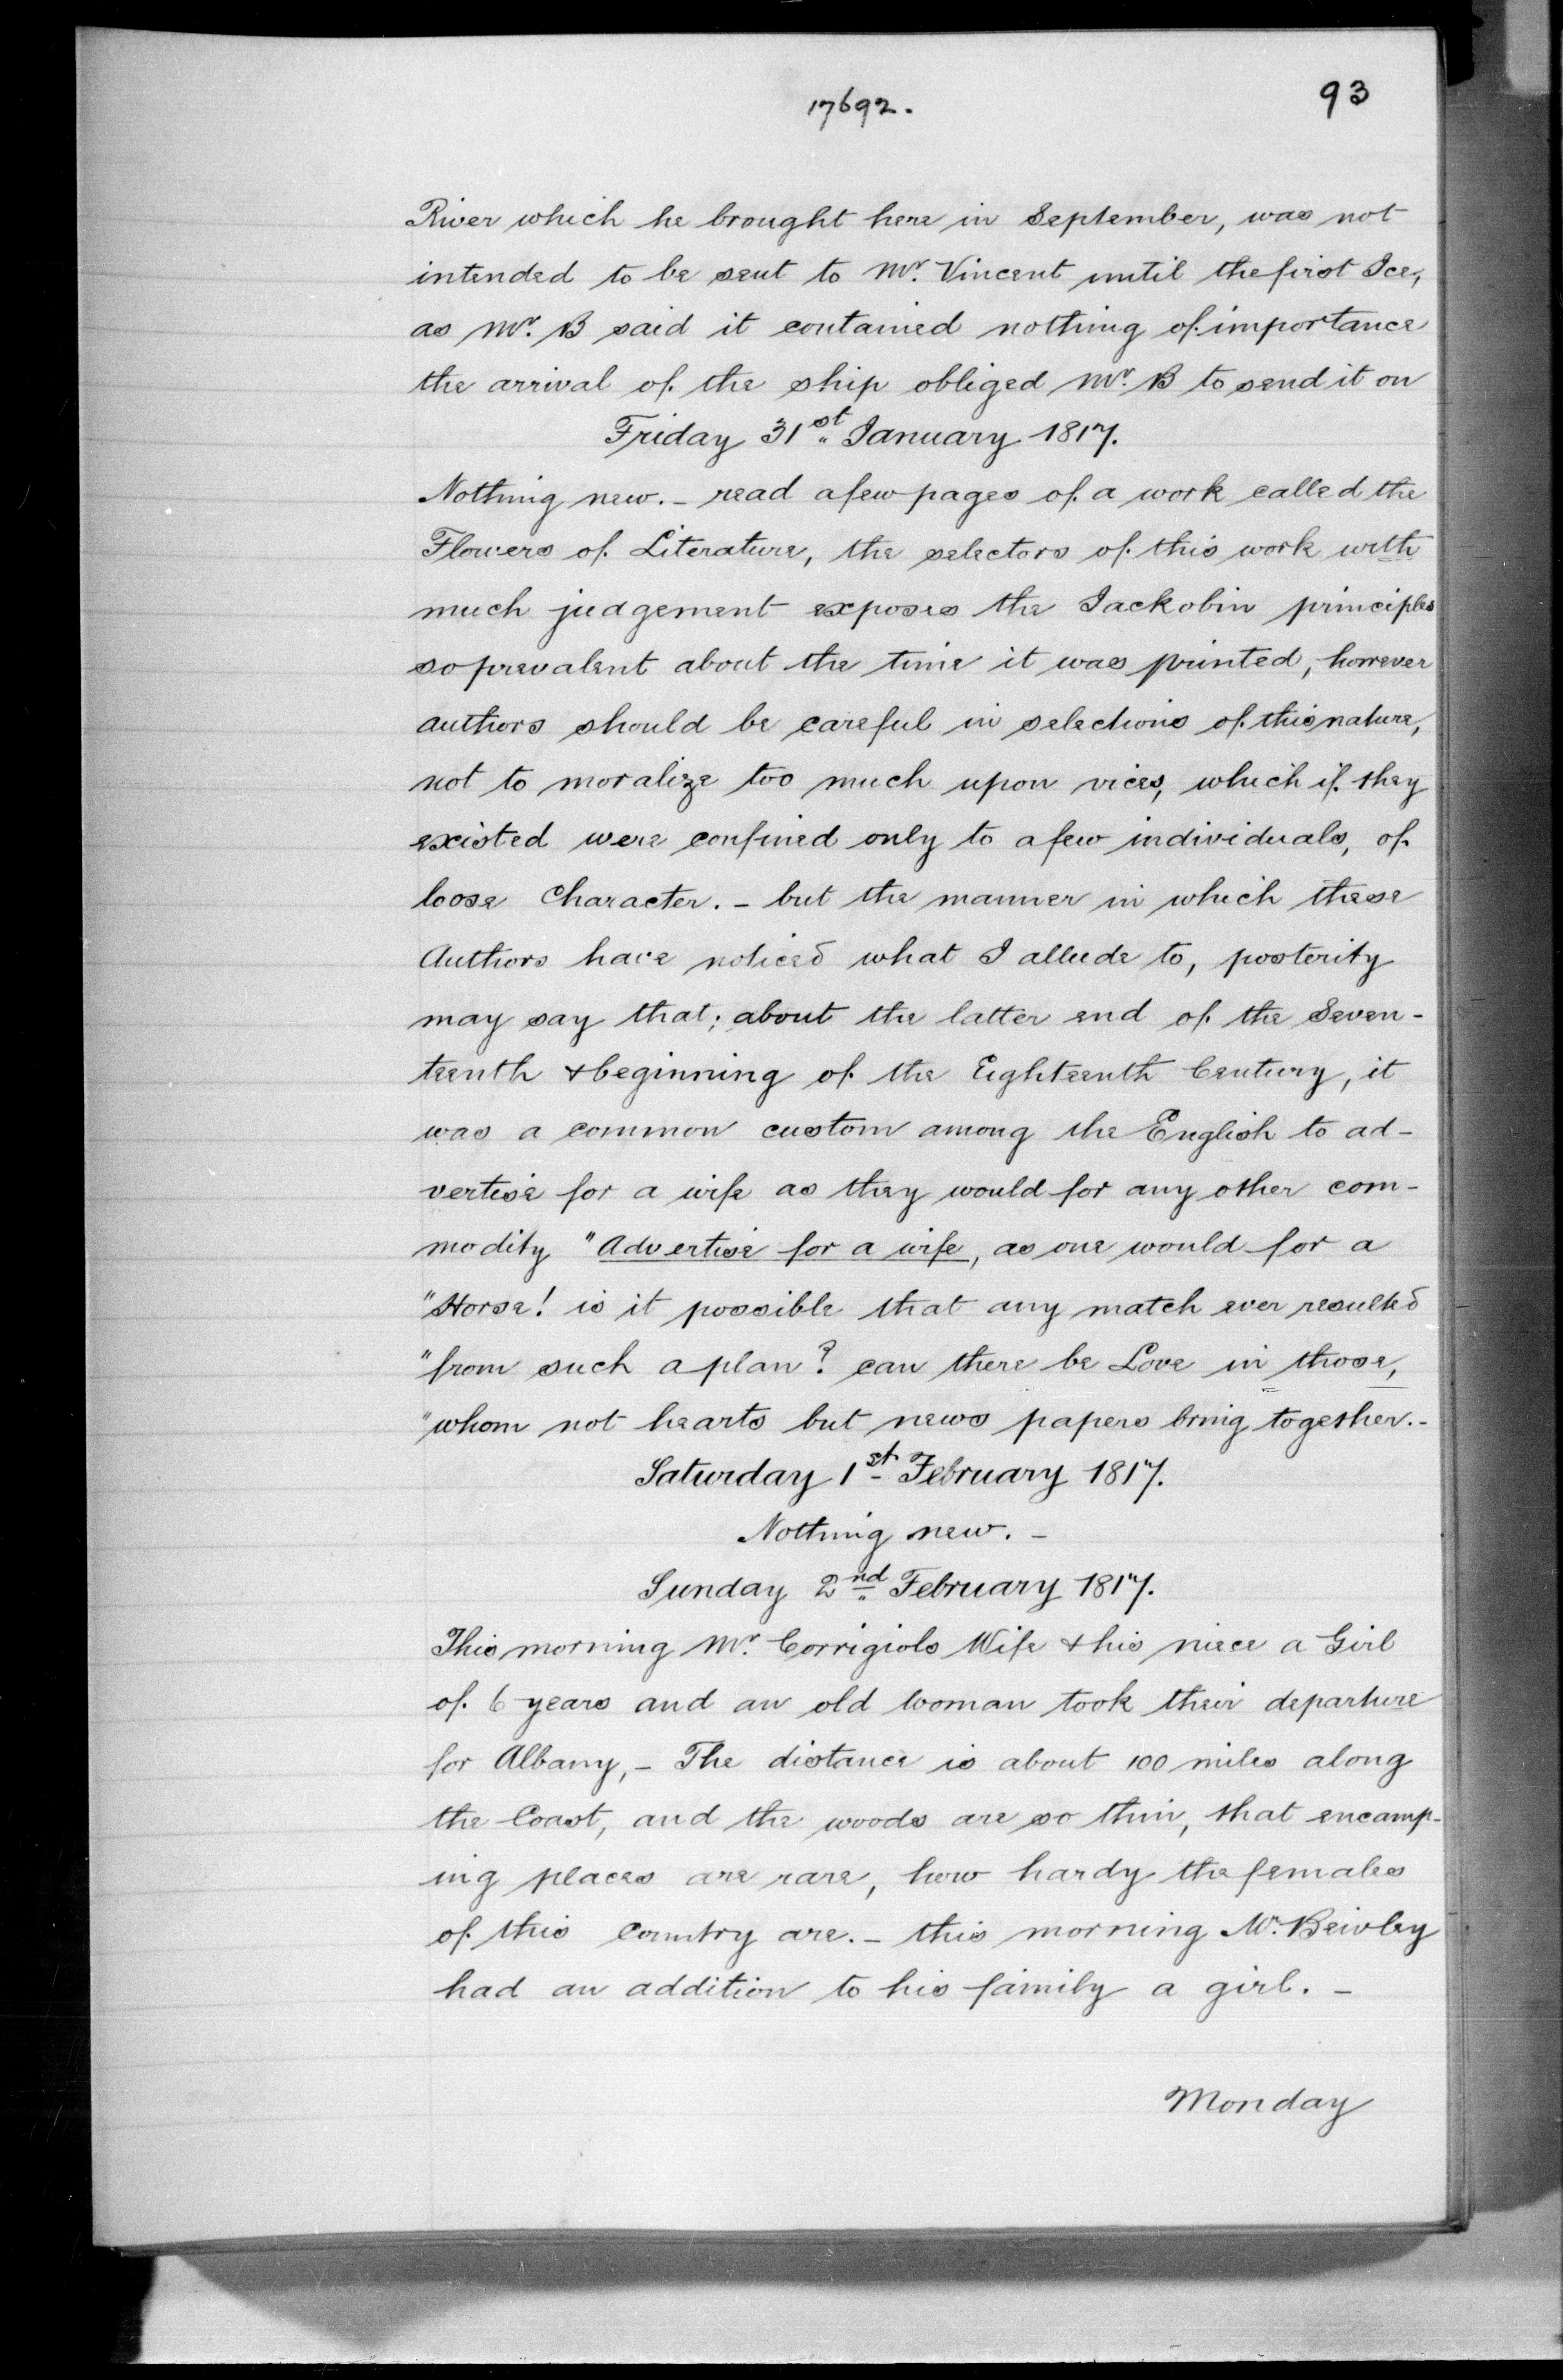 17692.
93
River which he brought here in September, was not
intended to be sent to Mr. Vincent until the first Ice,
as Mr. B said it contained nothing of importance
the arrival of the ship obliged Mr. B to send it on
Friday 31st January 1817.
Nothing new. - read a few pages of a work called the
Flowers of Literature, the selectors of this work with
much judgement exposes the Jackobin principles
so prevalent about the time it was printed, however
authors should be careful in selections of this nature,
not to moralize too much upon vices, which if they
existed were confined only to a few individuals, of
loose Character. - but the manner in which these
Authors have noticed what I allude to, posterity
may say that; about the latter end of the Seven-
teenth & beginning of the Eighteenth Century, it
was a common custom among the English to ad-
vertise for a wife as they would for any other com-
modity "Advertise for a wife, as one would for a
"Horse! is it possible that any match ever resulted
"from such a plan? can there be Love in those,
"whom not hearts but news papers bring together. -
Saturday 1st February 1817.
Nothing new. -
Sunday 2nd February 1817.
This morning Mr. Corrigiols Wife & his niece a Girl
of 6 years and an old woman took their departure
for Albany, - The distance is about 100 miles along
the Coast, and the woods are so thin, that encamp-
ing places are rare, how hardy the females
of this Country are. - this morning Mr. Beivley
had an addition to his family a girl. -
Monday